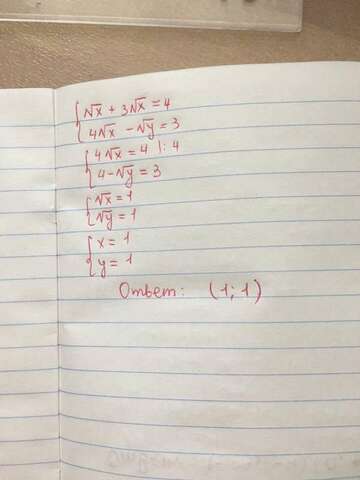 √x + 3√x = 4
4√x - √y = 3
4√x = 4 |: 4
4 - √y = 3
√x = 1
√y = 1
x = 1
y = 1
Ответ: (1; 1)